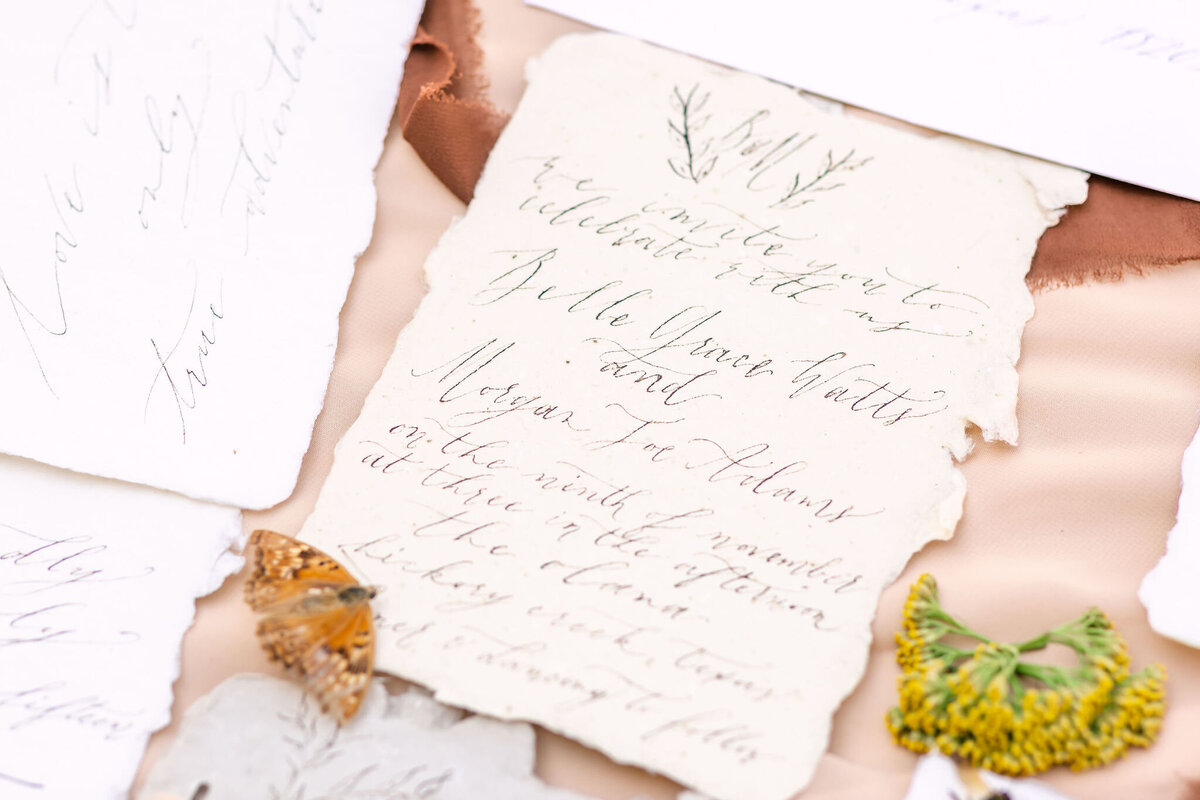 B&M
we invite you to
celebrate with us
Belle Grace Watts
and
Morgan Joe Adams
on the ninth of november
at three in the afternoon
the olana
hickory creek, texas
& dancing to follow
love is
only
true
adventure
fifteen